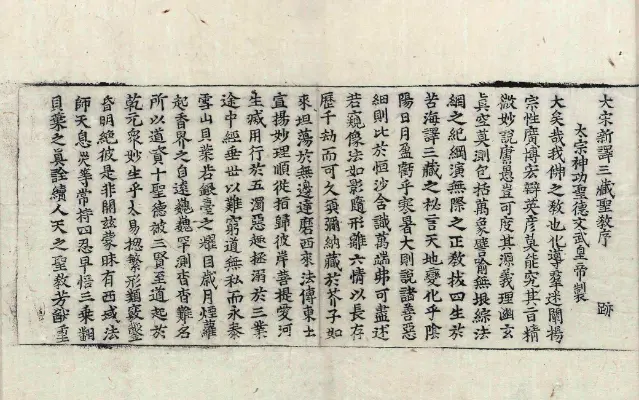 大宋新譯三藏聖教序　跡
太宗神功聖德文武皇帝製
大矣哉我佛之教也化導羣迷闡揚
宗性廣博宏辯英彥莫能究其旨精
微妙說庸愚豈可度其源義理幽玄
真空莫測包括萬象譬喻無垠綜法
網之紀綱演無際之正教拔四生於
苦海譯三藏之秘言天地變化乎陰
陽日月盈虧乎寒暑大則說諸善惡
細則比於恒沙含識萬端弗可盡述
若窺像法如影隨形離六情以長存
歷千劫而可久須彌納藏於芥子如
來坦蕩於無邊達磨西來法傳東土
宣揚妙理順從指歸彼岸菩提愛河
生滅用行於五濁惡趣拯溺於三業
途中經垂世以難窮道無私而永泰
雪山貝葉若銀臺之耀目歲月煙蘿
起香界之自遠巍巍罕測杳杳難名
所以道資十聖德被三賢至道起於
乾元衆妙生乎太易摠繁形類竅鑿
昏明絕彼是非開茲蒙昧有西域法
師天息灾等常持四忍早悟三乘翻
貝葉之真詮續人天之聖教芳猷重